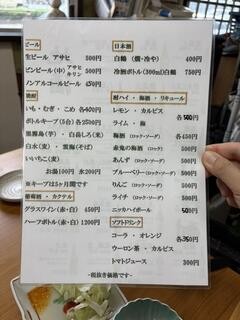 ビール
生ビール アサヒ 500円
ビンビール(中) アサヒ キリン 500円
ノンアルコールビール 450円
焼酎
いも・むぎ・こめ 各400円
ボトルキープ(5合) 各2500円
黒霧島(芋)・白岳しろ(米)
白水(麦)・雲海(そば)
いいちこ(麦)
お湯100円 氷200円
※キープは5ヶ月間です
葡萄酒・カクテル
グラスワイン(赤・白) 450円
ハーフボトル(赤・白) 1200円
日本酒
白鶴 (燗・冷や) 400円
冷酒ボトル(300ml)白鶴 750円
酎ハイ・梅酒・リキュール
レモン・カルピス 各500円
ライム・梅
梅酒(ロック・ソーダ) 450円
赤兎の梅酒(ロック) 500円
あんず(ロック・ソーダ) 500円
ブルーベリー(ロック・ソーダ) 500円
りんご(ロック・ソーダ) 500円
ライチ(ロック・ソーダ) 500円
ニッカハイボール 500円
ソフトドリンク
コーラ・オレンジ 各350円
ウーロン茶・カルピス
トマトジュース 300円
-税抜き価格です-